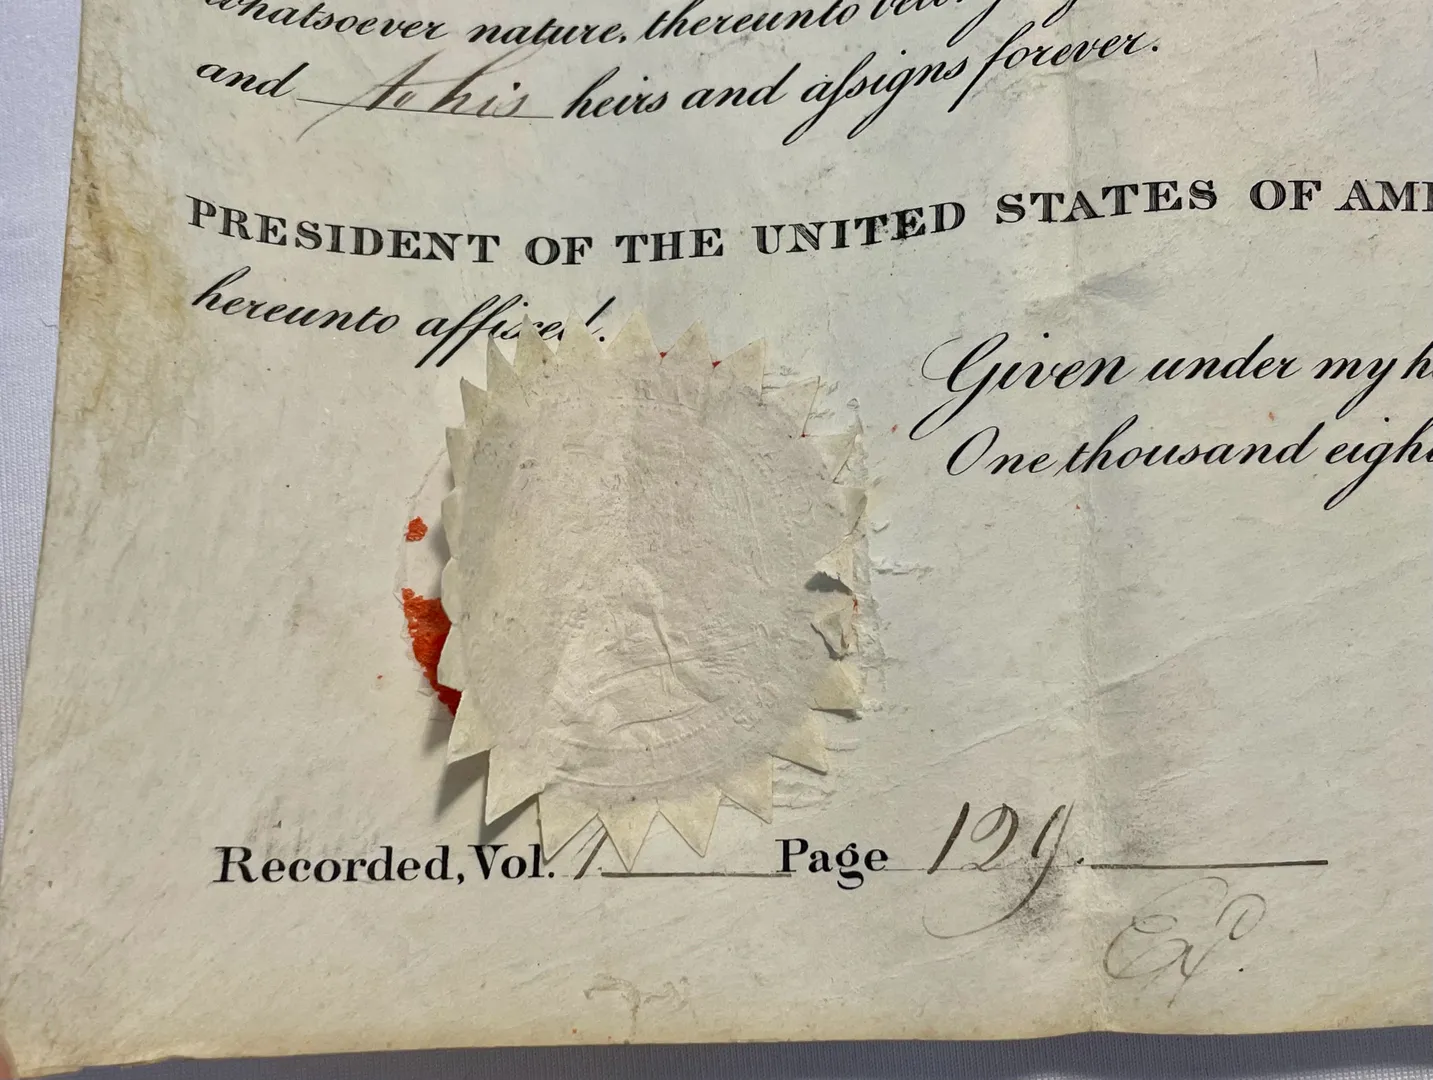 whatsoever nature, thereunto
and to his heirs and aſsigns forever.
PRESIDENT OF THE UNITED STATES OF AM
hereunto affixed.
Given under my h
One thousand eigh
Recorded, Vol. 1 Page 129.
Exd.